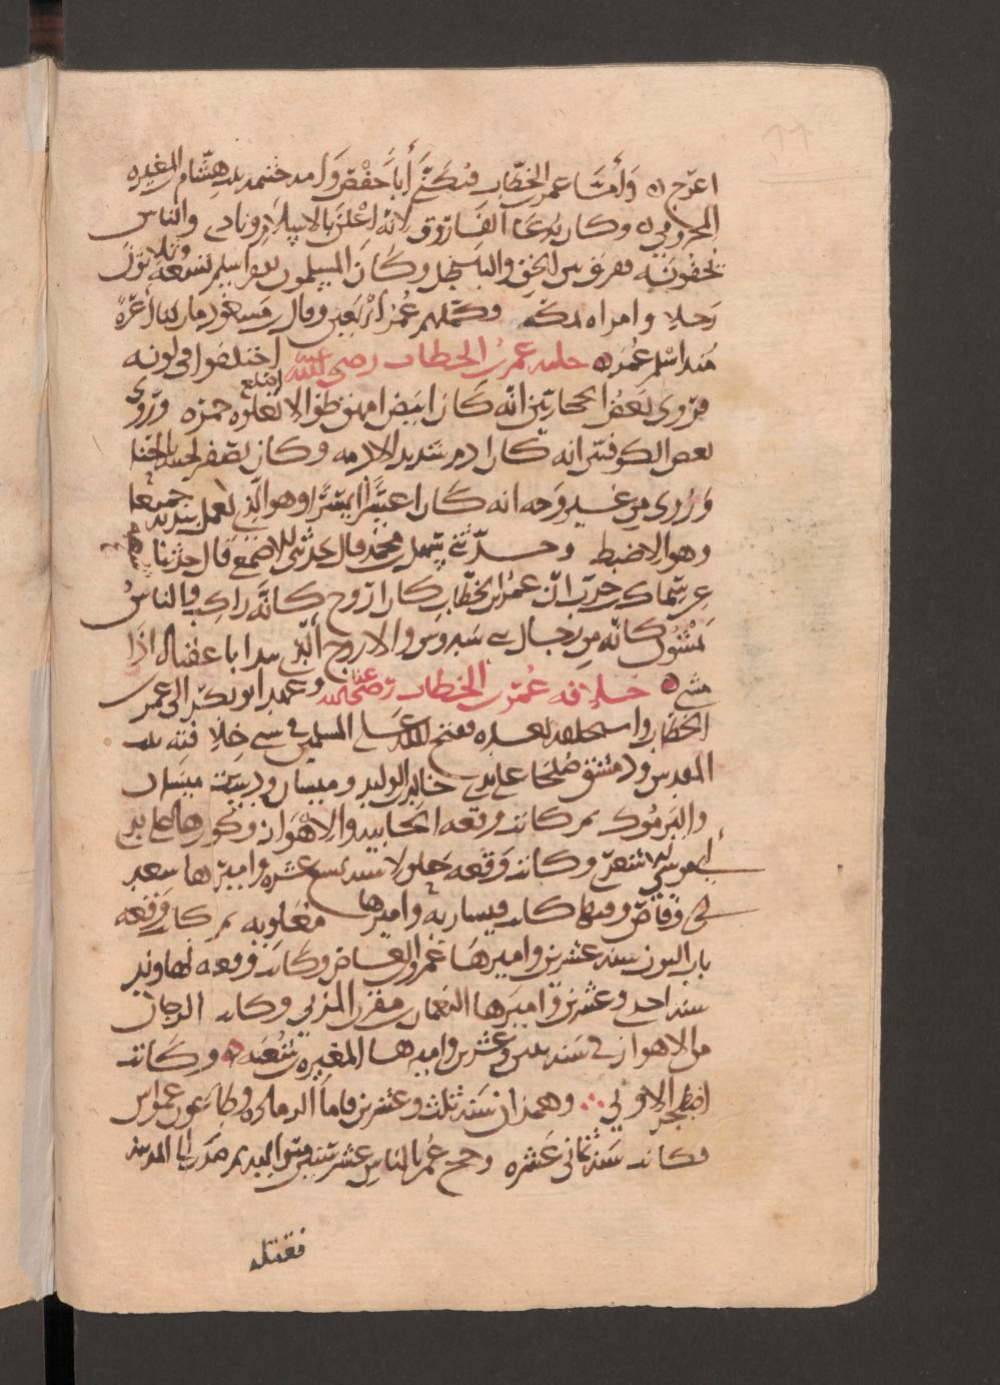 اعرج ه وأما عمر بن الخطاب فيكنى أبا حفص وأمه حنتمة بنت هشام المغيره
المخزومي ه وكان يدعا الفاروق لانه اعلن بالاسلام ونادى والناس
يخفونه ففرق بين الحق والباطل وكان المسلمون يوم اسلم تسعة وثلاثون
رجلا وامراه بمكه وكملهم عمر اربعين وقال بن مسعود ما زلنا أعزة
منذ اسلم عمر ه حليه عمر بن الخطاب رضي الله عنه اختلفوا في لونه
فروى بعض الحجازيين انه كان ابيض امهق طوالا اصلع تعلوه حمره وروى
بعض الكوفيين انه كان ادم شديد الادمه وكان يصفر لحيته بالحنا
وروى من غير وجه انه كان اعسر ايسرا وهو الذي يعمل بيديه جميعا
وهو الاضبط وحدثني سهل بن محمد قال حدثني الاصمعي قال حدثنا
عن سماك بن حرب ان عمر بن الخطاب كان اروح كانه راكب والناس
يمشون كانه من رجال بني سدوس والاروح الذي يتدانا عقباه اذا
مشى ه خلافه عمر بن الخطاب رضي الله عنه وعهد ابو بكر الى عمر بن
الخطاب واستخلفه بعده ففتح الله على المسلمين في سني خلافته بيت
المقدس ودمشق صلحا على يدي خالد بن الوليد وميسان ودست ميسان
واليرموك ثم كانت وقعه الجابيه والاهواز وكورها على يد
أبي موسى الاشعري وكانت وقعه جلولا سنه تسع عشره واميرها سعد
بن ابي وقاص وفيها كانت قيساريه واميرها معاويه ثم كان وقعه
باب اليون سنه عشرين واميرها عمرو بن العاص وكانت وقعه نهاوند
سنه احدى وعشرين واميرها النعمان بن مقرن المزني وكانت الرجان
من الاهواز في سنه اثنين وعشرين واميرها المغيره بن شعبه ه وكانت
اصطخر الاولى ∴ وهمذان سنه ثلث وعشرين فاما الرماده وطاعون عمواس
فكانت سنه ثماني عشره وحج عمر بالناس عشر سنين متواليه ثم صدر الى المدينه
فقتله